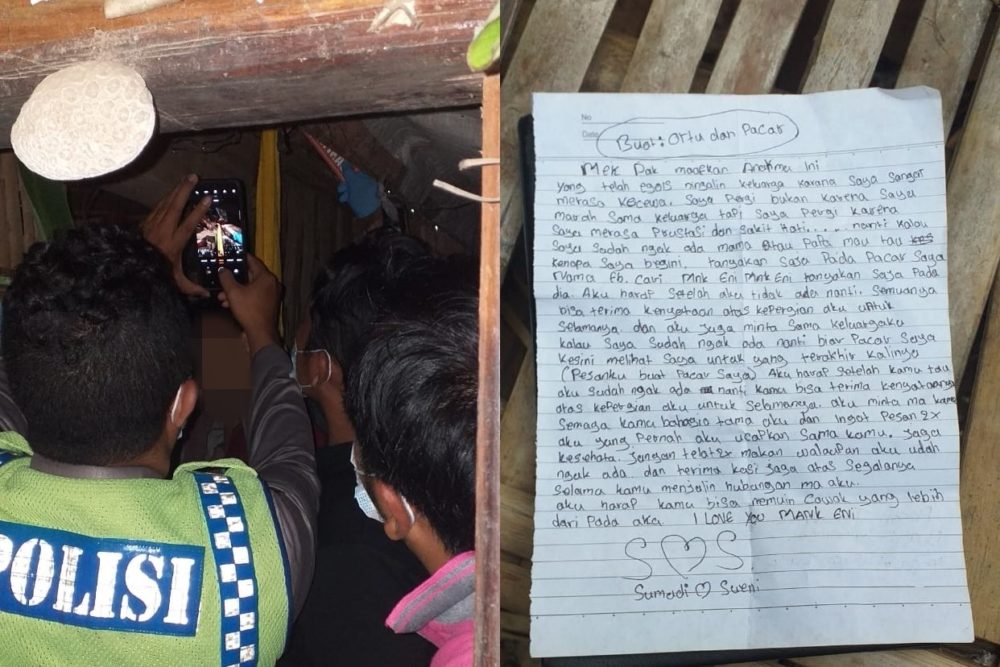 POLISI
No
Date
Buat : Ortu dan Pacar
Mek Pak maafkan Anakmu Ini
yang telah egois ningalin keluarga karana Saya Sangat
merasa kecewa. Saya Pergi bukan karena Saya
marah Sama keluarga tapi Saya Pergi karena
Saya merasa Prustasi dan Sakit Hati.... nanti kalau
Saya Sudah ngak ada mama atau Papa mau tau
kenapa Saya begini. tanyakan Saja Pada Pacar Saya
Nama Fb. Cari Mnk Eni Mnk Eni tanyakan Saja Pada
dia. Aku harap Setelah aku tidak ada nanti. Semuanya
bisa terima kenyataan atas kePergian aku untuk
Selamanya. dan aku Juga minta Sama keluargaku
kalau Saya Sudah ngak ada nanti biar Pacar Saya
kesini melihat Saya untuk yang terakhir kalinya
(Pesanku buat Pacar Saya) Aku harap Setelah kamu tau
aku Sudah ngak ada nanti kamu bisa terima kenyataanya
atas kePergian aku untuk Selamanya. aku minta ma kamu
Semoga kamu bahagia tama aku dan Ingat Pesan 2x
aku yang Pernah aku ucapkan Sama kamu. Jaga
kesehata. Jangan telat2x makan walaupun aku udah
ngak ada. dan terima kasi Jaga atas Segalanya
Selama kamu menjalin hubungan ma aku.
aku harap kamu bisa nemuin Cowak yang lebih
dari Pada aku I LOVE YOU MANK ENI
S ♡ S
Sumadi ♡ Sweni